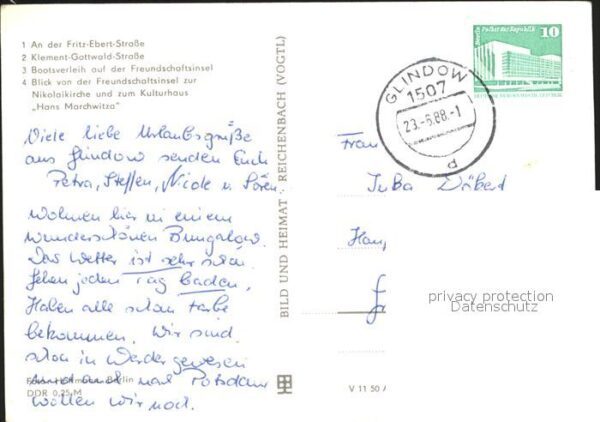 1 An der Fritz-Ebert-Straße
2 Klement-Gottwald-Straße
3 Bootsverleih auf der Freundschaftsinsel
4 Blick von der Freundschaftsinsel zur
Nikolaikirche und zum Kulturhaus
„Hans Marchwitza"
Viele liebe Urlaubsgrüße
aus Glindow senden Euch
Petra, Steffen, Nicole u. Sören.
Wohnen hier in einem
wunderschönen Bungalow.
Das Wetter ist sehr schön
gehen jeden Tag baden,
Haben alle schon Farbe
bekommen. Wir sind
schon in Werder gewesen
und auch mal Potsdam
wollen wir noch.
Berlin
DDR 0,25 M
BILD UND HEIMAT REICHENBACH (VOGTL)
V 11 50
Palast der Republik
10
GLINDOW
1507
23.-6.88.-1
d
Frau
Juba Döbert
privacy protection
Datenschutz